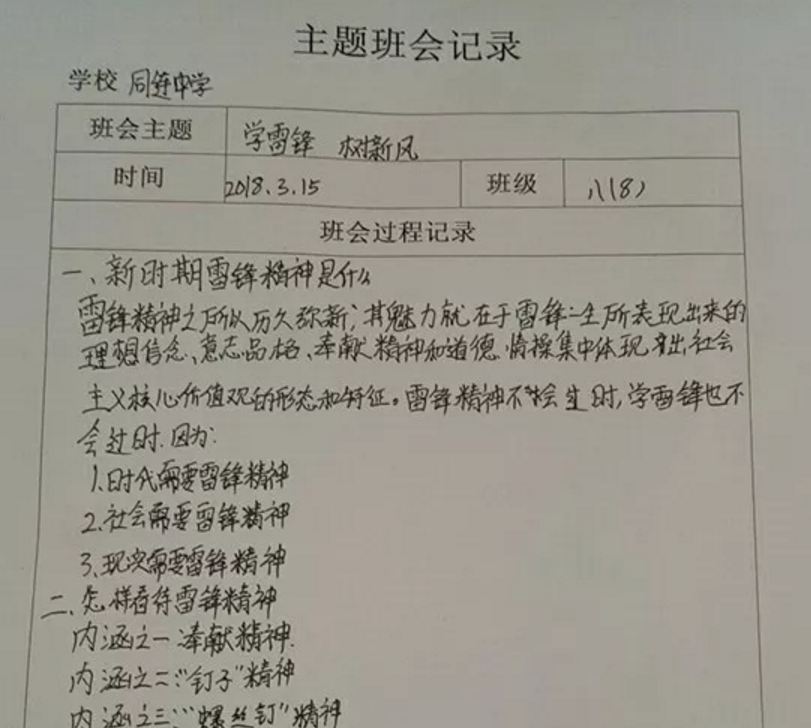 主题班会记录
学校 同连中学
班会主题 学雷锋 树新风
时间 2018.3.15 班级 八(8)
班会过程记录
一、新时期雷锋精神是什么
雷锋精神之所以历久弥新,其魅力就在于雷锋一生所表现出来的
理想信念、意志品格、奉献精神和道德情操集中体现 出社会
主义核心价值观的形态和特征。雷锋精神不会过时,学雷锋也不
会过时.因为:
1.时代需要雷锋精神
2.社会需要雷锋精神
3.现实需要雷锋精神
二、怎样看待雷锋精神
内涵之一:奉献精神.
内涵之二:"钉子"精神
内涵之三:"螺丝钉"精神